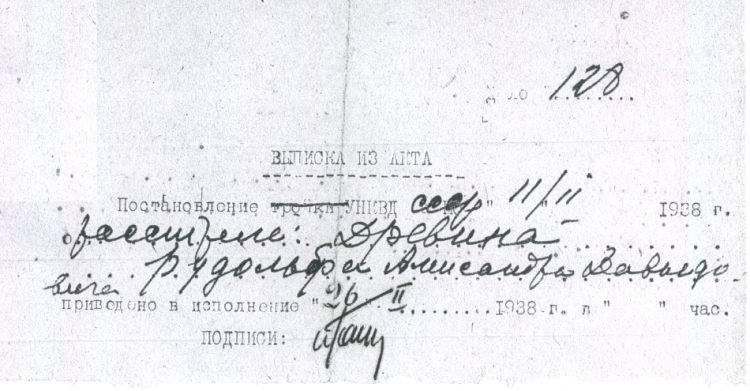 128
ВЫПИСКА ИЗ АКТА
Постановление тройки УНКВД ссср " 11/II 1938 г.
о расстреле: Древина
Рудольфа Александра Давыдо-
вича
приведено в исполнение " 26/II 1938 г. в " " час.
ПОДПИСИ: